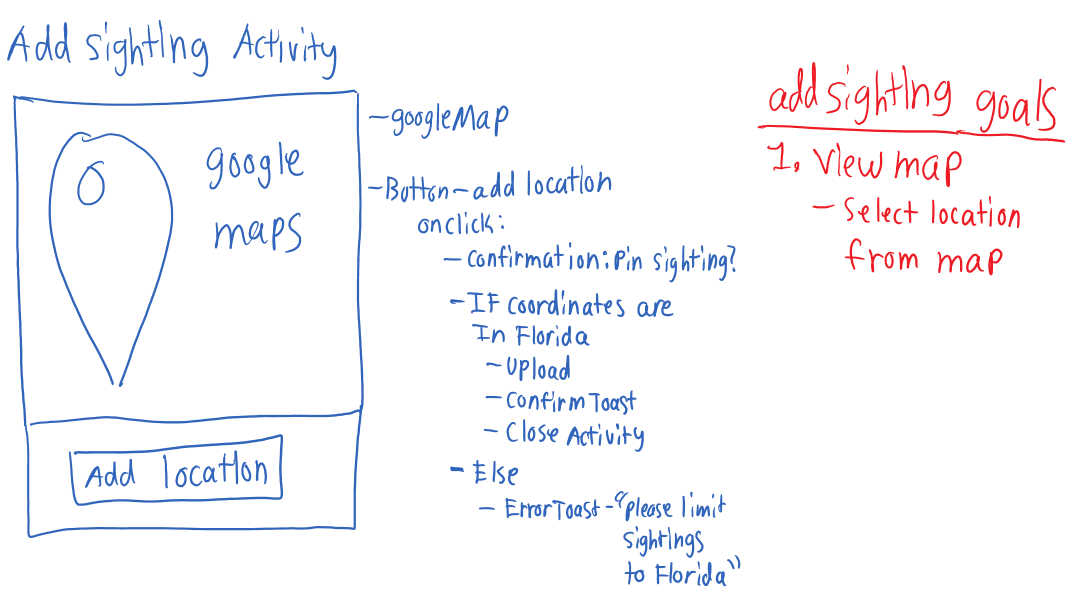 Add Sighting Activity
google
maps
Add location
- googleMap
- Button - add location
onclick:
- Confirmation: Pin Sighting?
- IF coordinates are
In Florida
- Upload
- Confirm Toast
- Close Activity
- Else
- Error Toast - "please limit
sightings
to Florida"
add sighting goals
1. View map
- Select location
from map